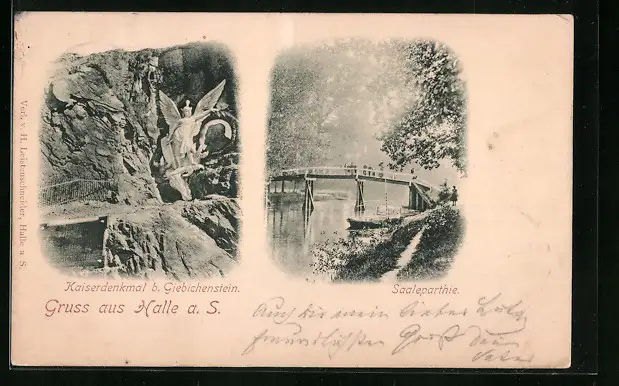 Verl. v. H. Leistenschneider, Halle a. S.
Kaiserdenkmal b. Giebichenstein.
Saaleparthie.
Gruss aus Halle a. S.
Auch Dir mein lieber
freundlichsten Gruß Dein
Vater